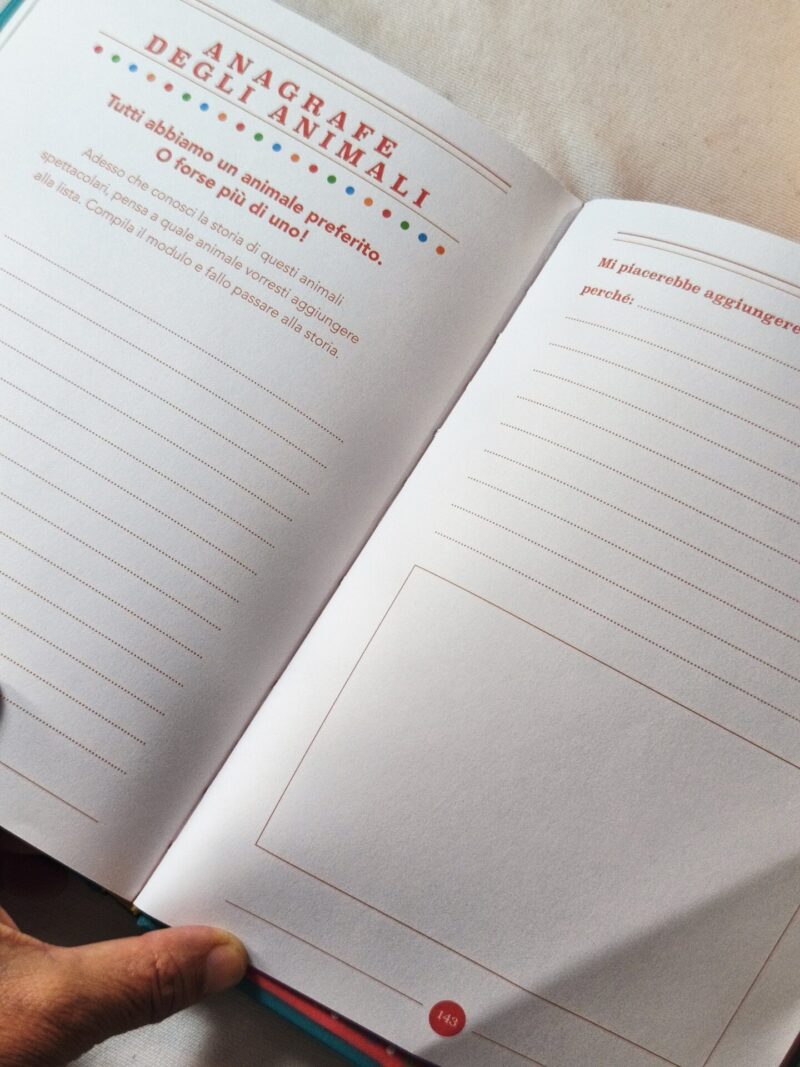 ANAGRAFE
DEGLI ANIMALI
Tutti abbiamo un animale preferito.
O forse più di uno!
Adesso che conosci la storia di questi animali
spettacolari, pensa a quale animale vorresti aggiungere
alla lista. Compila il modulo e fallo passare alla storia.
Mi piacerebbe aggiungere
perché:
143